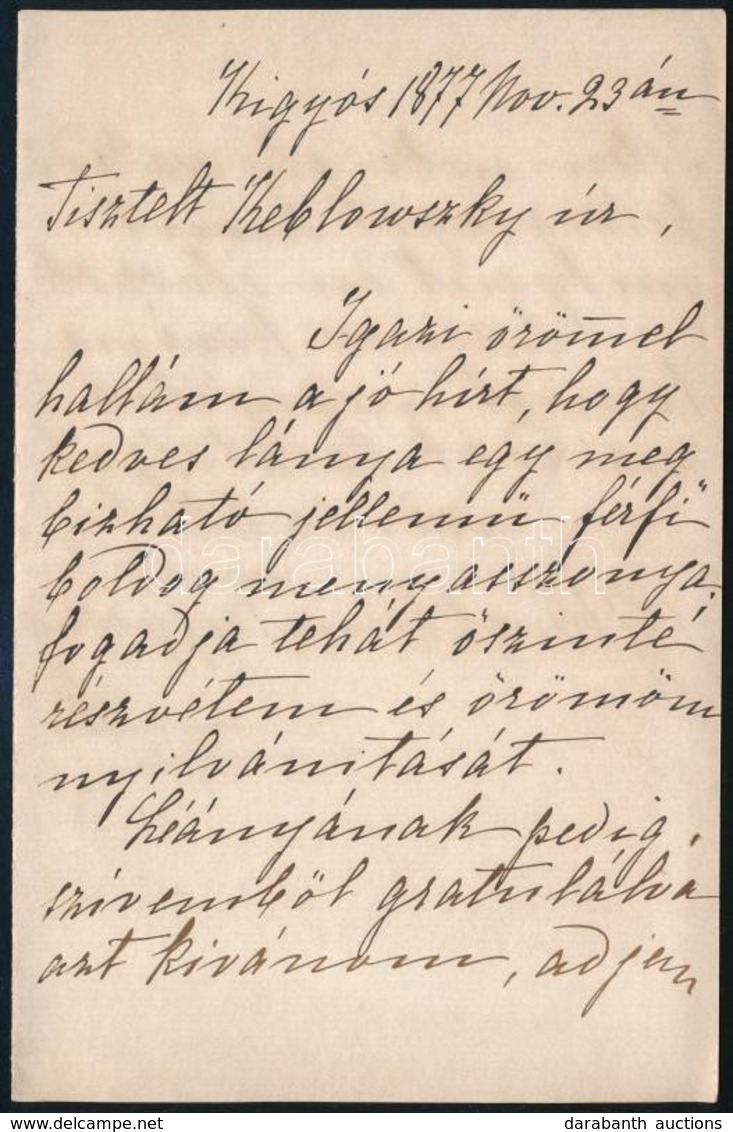 Kigyós 1877 Nov. 23án
Tisztelt Keblowszky úr,
Igazi örömel
hallám a jó hírt, hogy
kedves lánya egy meg
bizható jellemü férfi
boldog menyasszonya.
fogadja tehát öszinté
részvétem és örömöm
nyilvánitását.
Léányának pedig
szivemböl gratulálva
azt kivánom, adjon
darabanth
darabanth auctions